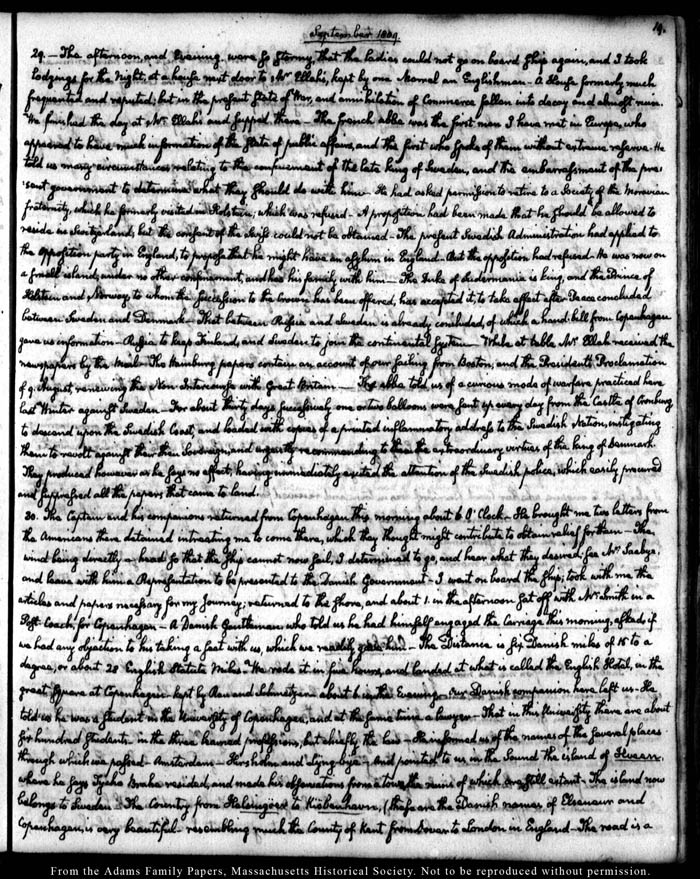 September 1809.
19.
29. — The afternoon, and Evening were so stormy, that the ladies could not go on board Ship again, and I took
Lodgings for the Night, at a house next door to Mr Ellah's, kept by one an Englishman — A House formerly much
frequented and reputed; but in the present State of War, and annihilation of Commerce fallen into decay and almost ruin.
We finished the day at Mr Ellah's and supped there — The French abbé was the first man I have met in Europe, who
appeared to have much information of the State of public affairs, and the first who spoke of them without extreme reserve. He
told us many circumstances relating to the confinement of the late king of Sweden, and the embarrassment of the pre-
sent government to determine what they should do with him — He had asked permission to retire to a Society of the Moravian
fraternity, which he formerly visited in Holstein, which was refused — A proposition had been made that he should be allowed to
reside in Switzerland, but the consent of the Swiss could not be obtained — The present Swedish Administration had applied to
the opposition party in England, to propose that he might have an asylum in England. But the opposition had refused — He was now on
a small island, under no other confinement, and has his family with him — The Duke of Sudermania is king, and the Prince of
Holstein and Norway, to whom the succession to the crown has been offered, has accepted it, to take effect after Peace concluded
between Sweden and Denmark — That between Russia and Sweden is already concluded, of which a hand-bill from Copenhagen
gave us information — Russia to keep Finland, and Sweden to join the continental System — While at table Mr Ellah received the
newspapers by the Mail — The Hamburg papers contain an account of our sailing from Boston, and the President's Proclamation
of 9. August, renewing the Non Intercourse with Great Britain — The abbé told us of a curious mode of warfare practiced here
last Winter against Sweden — For about thirty days successively one or two balloons were sent up every day from the Castle of Cronburg
to descend upon the Swedish Coast, and loaded with copies of a printed inflammatory address to the Swedish Nation, instigating
them to revolt against their then Sovereign, and urgently recommending to them the extraordinary virtues of the king of Denmark.
They produced however as he says no effect; having immediately excited the attention of the Swedish police, which easily procured
and suppressed all the papers that came to land.
30. The Captain and his companions returned from Copenhagen this morning about 6 O'Clock. He brought me two letters from
the Americans there detained intreating me to come there, which they thought might contribute to obtain relief for them — The
wind being directly a-head so that the Ship cannot now sail, I determined to go, and hear what they desired, see Mr Saabye,
and leave with him a Representation to be presented to the Danish Government — I went on board the Ship; took with me the
articles and papers necessary for my Journey; returned to the shore, and about 1. in the afternoon set off with Mr Smith in a
Post-Coach for Copenhagen — A Danish Gentleman, who told us he had himself engaged the Carriage this morning, asked if
we had any objection to his taking a seat with us, which we readily gave him. — The Distance is six Danish miles of 15 to a
degree, or about 28 English Statute Miles. We rode it in five hours, and landed at what is called the English Hotel, in the
great square at Copenhagen kept by Rau and about 6 in the Evening — Our Danish companion here left us — He
told us he was a Student in the University of Copenhagen, and at the same time a lawyer — That in this University there are about
six hundred Students in the three learned professions, but chiefly the law — He informed us of the names of the several places
through which we passed — Amsterdam — Hirsholm and Lyng-bye — And pointed to us in the Sound the island of Hveen,
where he says Tycho Brahe resided, and made his observations from a tower the ruins of which are still extant — The island now
belongs to Sweden — The Country from Helsingöer to Kiöbenhavn, (these are the Danish names of Elsineur and
Copenhagen, is very beautiful — resembling much the County of Kent from Dover to London in England — The road is a
From the Adams Family Papers, Massachusetts Historical Society. Not to be reproduced without permission.